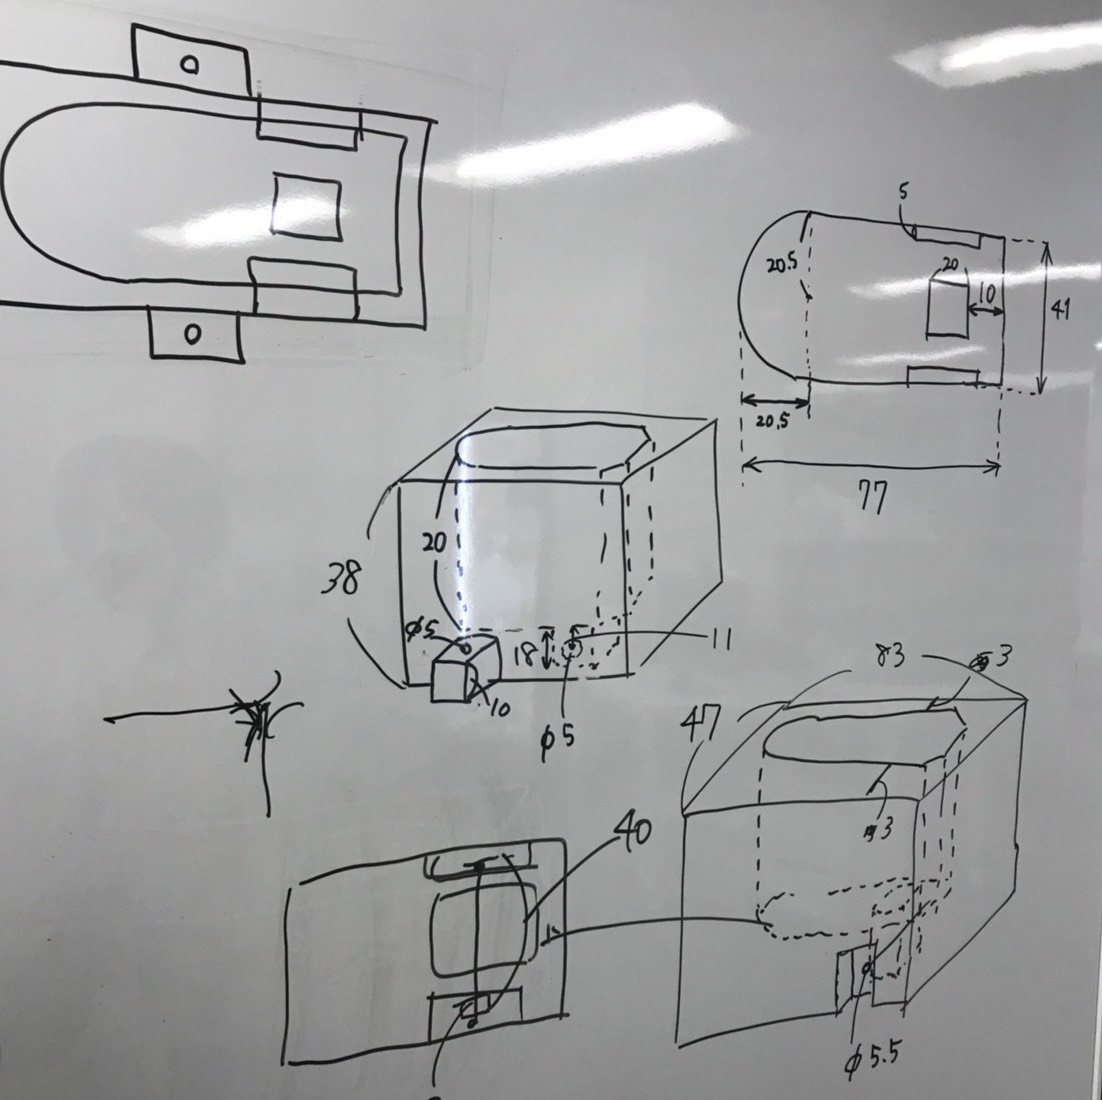 5
20.5
20
10
41
20.5
77
20
38
φ5
18
11
10
φ5
83
3
47
3
40
φ5.5